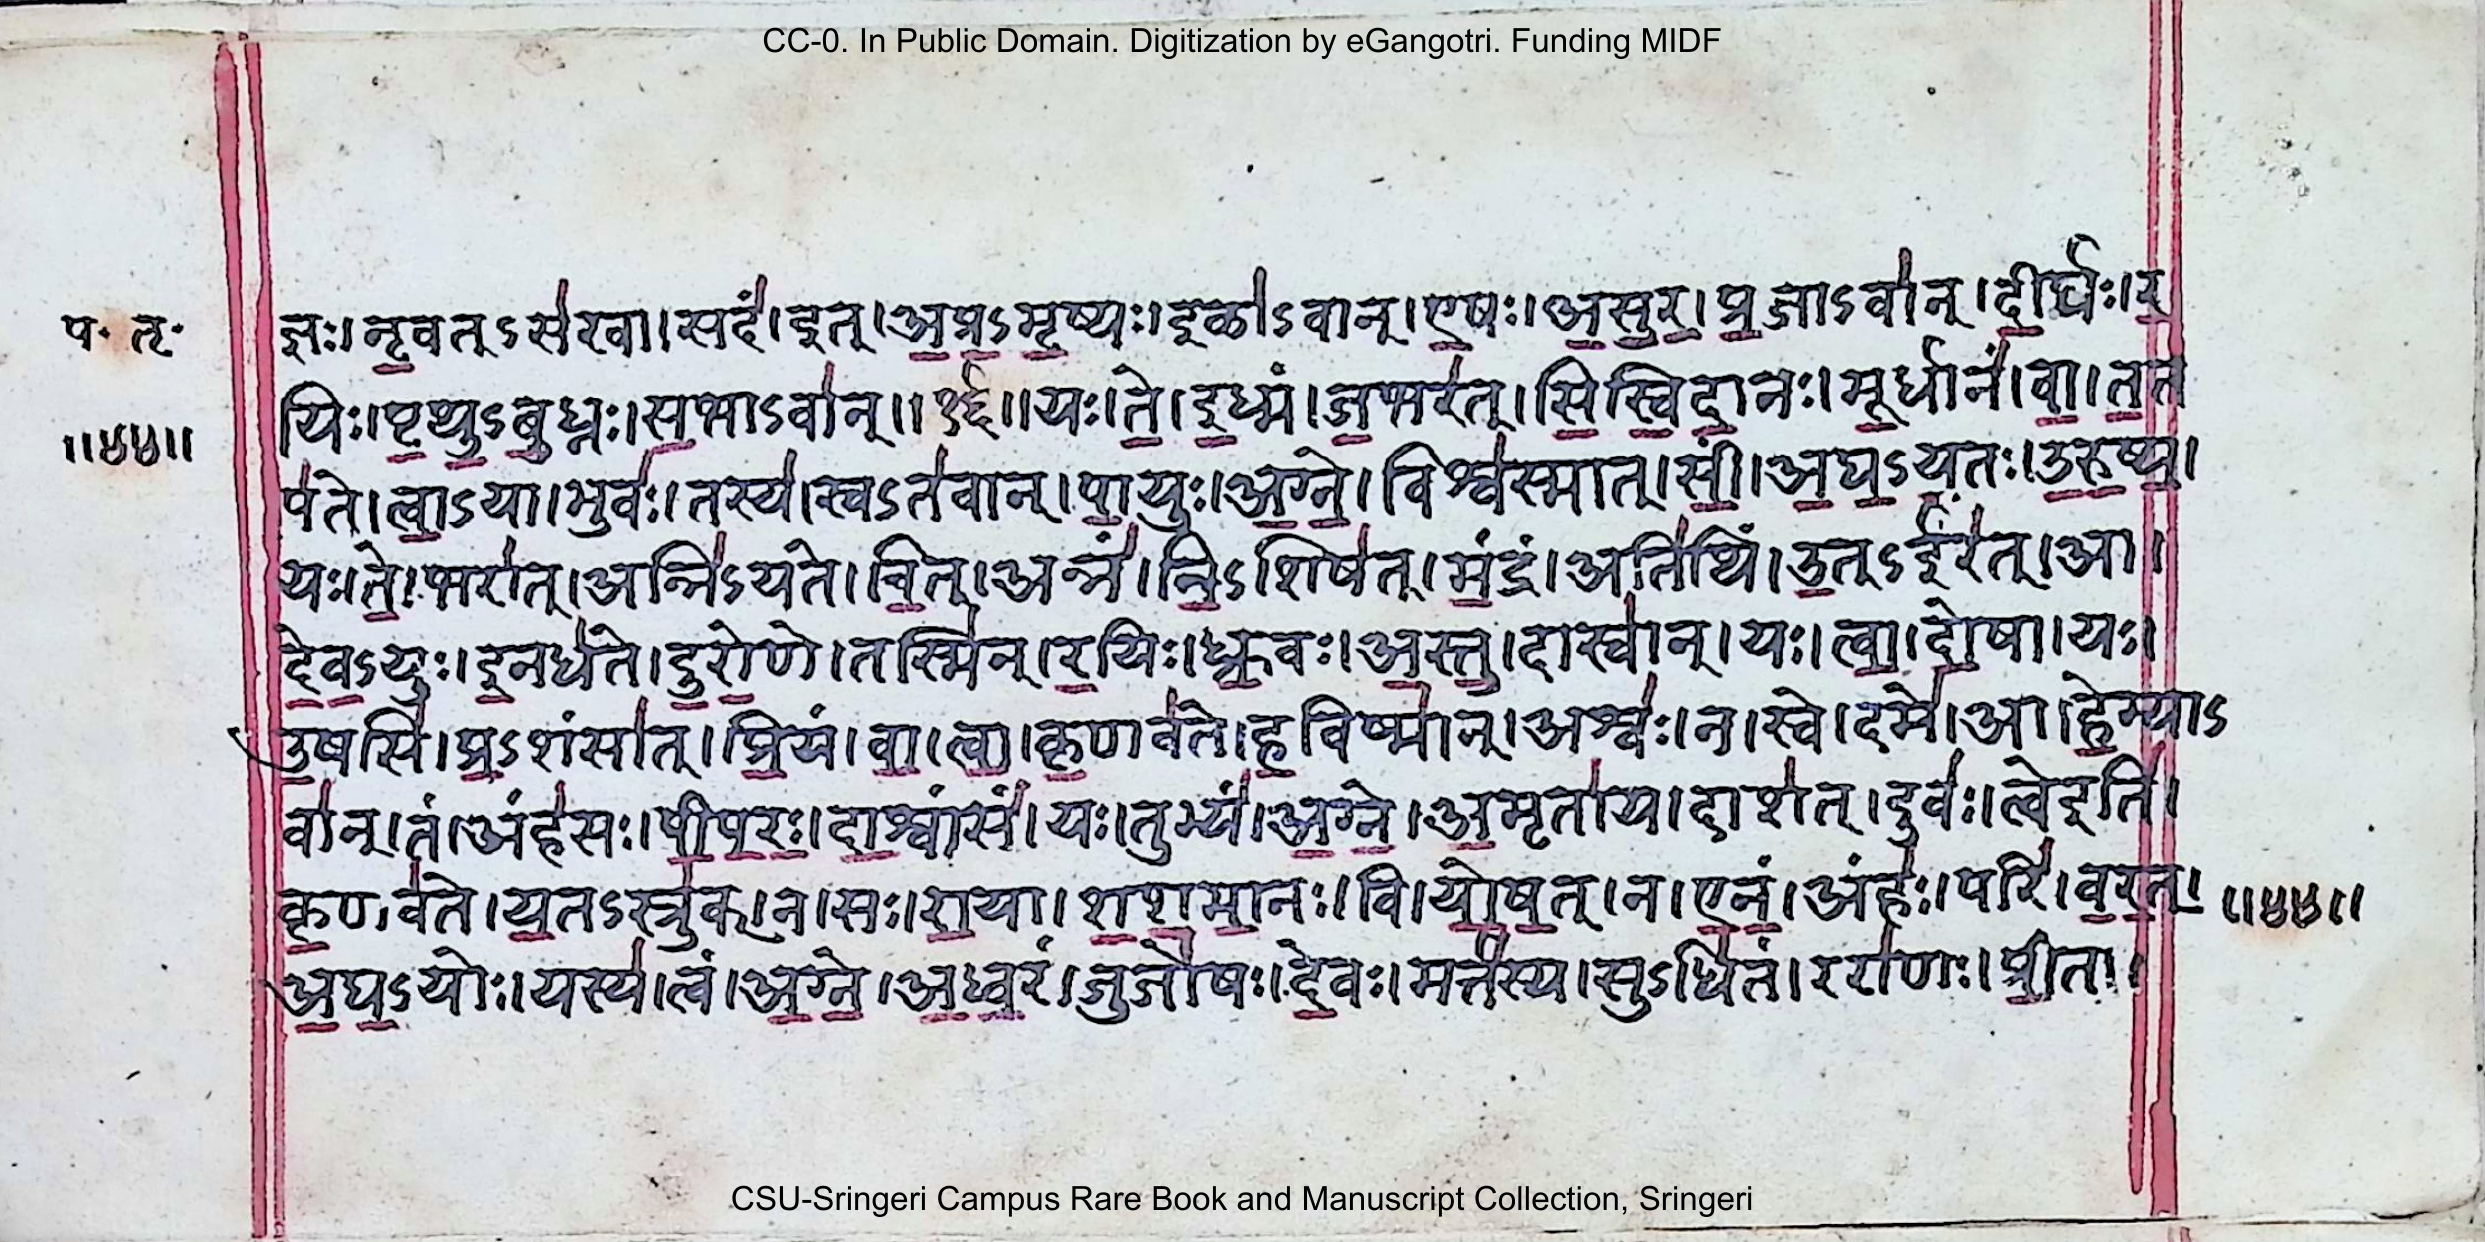 CC-0. In Public Domain. Digitization by eGangotri. Funding MIDF
प॰ तृ॰
॥४४॥
ज्ञः। नृ॒वत्ऽस॑खा। सदं॑। इत्। अ॒प्र॒ऽमृ॒ष्यः। इळा॑ऽवान्। ए॒षः। अ॒सु॒र॒। प्र॒जाऽवा॑न्। दी॒र्घः। र॒
यिः। पृ॒थु॒ऽबु॒ध्नः। स॒भाऽवा॑न्॥१६॥ यः। ते॒। इ॒ध्मं। ज॒भर॑त्। सि॒स्वि॒दा॒नः। मू॒र्धानं॑। वा॒। त॒त
प॑ते। त्वा॒ऽया। भुवः॑। तस्य॑। स्वऽत॑वान्। पा॒युः। अ॒ग्ने॒। विश्व॑स्मात्। सीं॒। अ॒घ॒ऽय॒तः। उ॒रु॒ष्य॒।
यः। ते॒। भरा॑त्। अन्नि॑ऽयते। चि॒त्। अन्नं॑। नि॒ऽशिष॑त्। मं॒द्रं। अति॑थिं। उ॒त्ऽईर॑त्। आ।
दे॒व॒ऽयुः। इ॒नध॑ते। दु॒रो॒णे। तस्मि॑न्। र॒यिः। ध्रु॒वः। अ॒स्तु॒। दास्वा॑न्। यः। त्वा॒। दो॒षा। यः।
उ॒षसि॑। प्र॒ऽशंसा॑त्। प्रि॒यं। वा॒। त्वा॒। कृ॒णव॑ते। ह॒विष्मा॑न्। अश्वः॑। न। स्वे। दमे॑। आ। हे॒म्याऽ
वा॑न्। तं। अंह॑सः। पी॒प॒रः॒। दा॒श्वांसं॑। यः। तुभ्यं॑। अ॒ग्ने॒। अ॒मृता॑य। दाश॑त्। दुवः॑। त्वेइति॑।
कृ॒णव॑ते। य॒तऽस्त्रु॑क्। न। सः। रा॒या। श॒श॒मा॒नः। वि। यो॒ष॒त्। न। ए॒नं॒। अंहः॑। परि॑। व॒र॒त्॒। ॥४४॥
अ॒घ॒ऽयोः। यस्य॑। त्वं। अ॒ग्ने॒। अ॒ध्व॒रं। जुजो॑षः। दे॒वः। मर्त॑स्य। सुऽधि॑तं। ररा॑णः। प्री॒ता।
CSU-Sringeri Campus Rare Book and Manuscript Collection, Sringeri